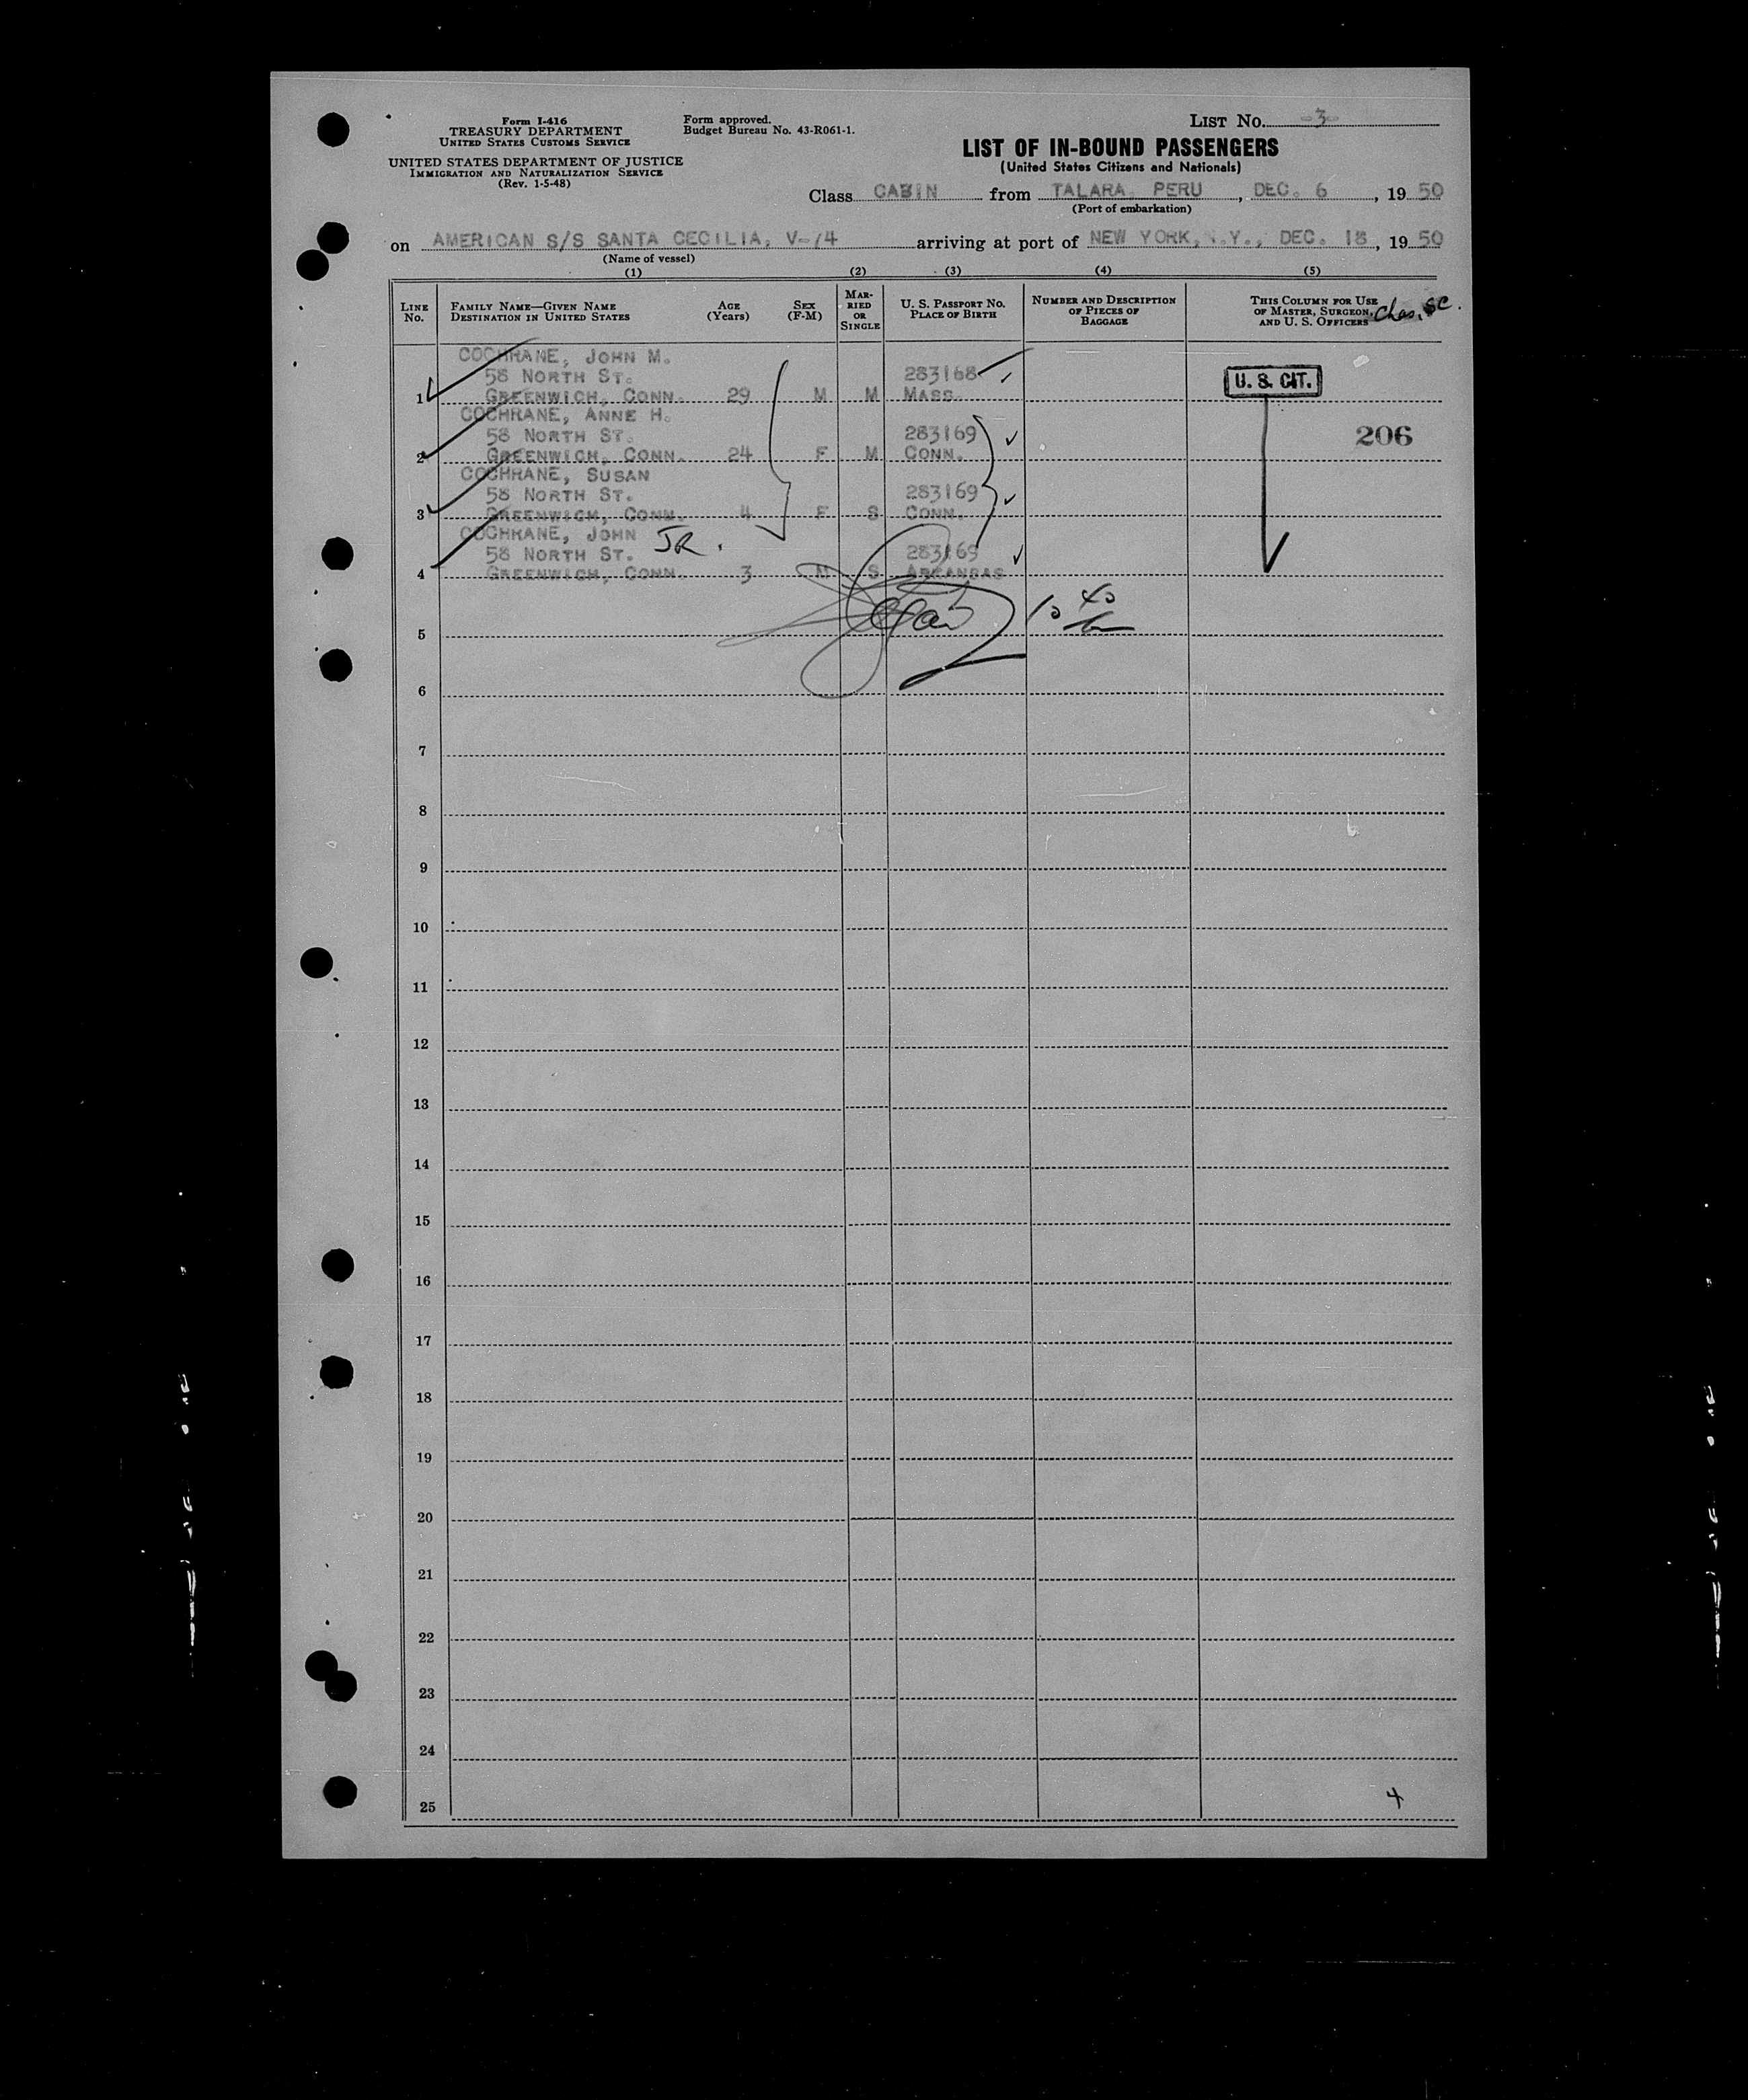 Form I-416
TREASURY DEPARTMENT
UNITED STATES CUSTOMS SERVICE
UNITED STATES DEPARTMENT OF JUSTICE
IMMIGRATION AND NATURALIZATION SERVICE
(Rev. 1-5-48)
Form approved.
Budget Bureau No. 43-R061-1.
LIST No. -3-
LIST OF IN-BOUND PASSENGERS
(United States Citizens and Nationals)
Class CABIN from TALARA, PERU, DEC. 6, 1950
(Port of embarkation)
on AMERICAN S/S SANTA CECILIA, V-74 arriving at port of NEW YORK, N.Y., DEC. 18, 1950
(Name of vessel)
(1) (2) (3) (4) (5)
LINE No. FAMILY NAME—GIVEN NAME DESTINATION IN UNITED STATES AGE (Years) SEX (F-M) MARRIED OR SINGLE U. S. PASSPORT No. PLACE OF BIRTH NUMBER AND DESCRIPTION OF PIECES OF BAGGAGE THIS COLUMN FOR USE OF MASTER, SURGEON, AND U. S. OFFICERS
COCHRANE, JOHN M.
58 NORTH ST. 283168
1 GREENWICH, CONN. 29 M M MASS. U. S. CIT.
COCHRANE, ANNE H.
58 NORTH ST. 283169 206
2 GREENWICH, CONN. 24 F M CONN.
COCHRANE, SUSAN
58 NORTH ST. 283169
3 GREENWICH, CONN. 4 F S CONN.
COCHRANE, JOHN JR.
58 NORTH ST. 283169
4 GREENWICH, CONN. 3 M S ARKANSAS
5
6
7
8
9
10
11
12
13
14
15
16
17
18
19
20
21
22
23
24
25 4